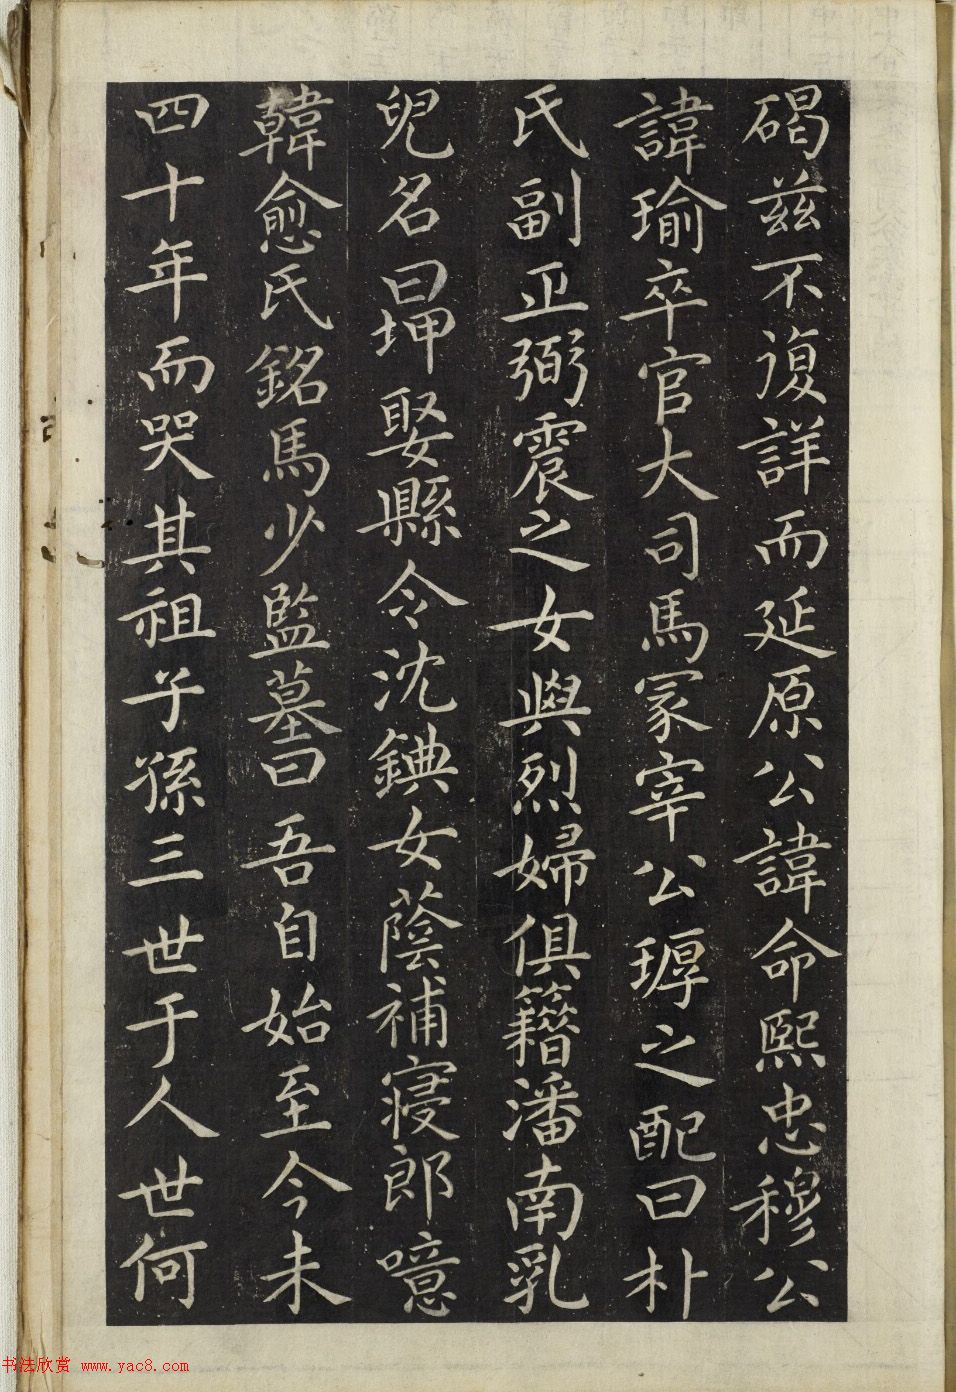 碣茲不復詳而延原公諱命熙忠穆公
諱瑜卒官大司馬冢宰公㻞之配曰朴
氏副正弼震之女與烈婦俱籍潘南乳
兒名曰坤娶縣令沈錪女蔭補寑郎噫
韓愈氏銘馬少監墓曰吾自始至今未
四十年而哭其祖子孫三世于人世何
书法欣赏 www.yac8.com